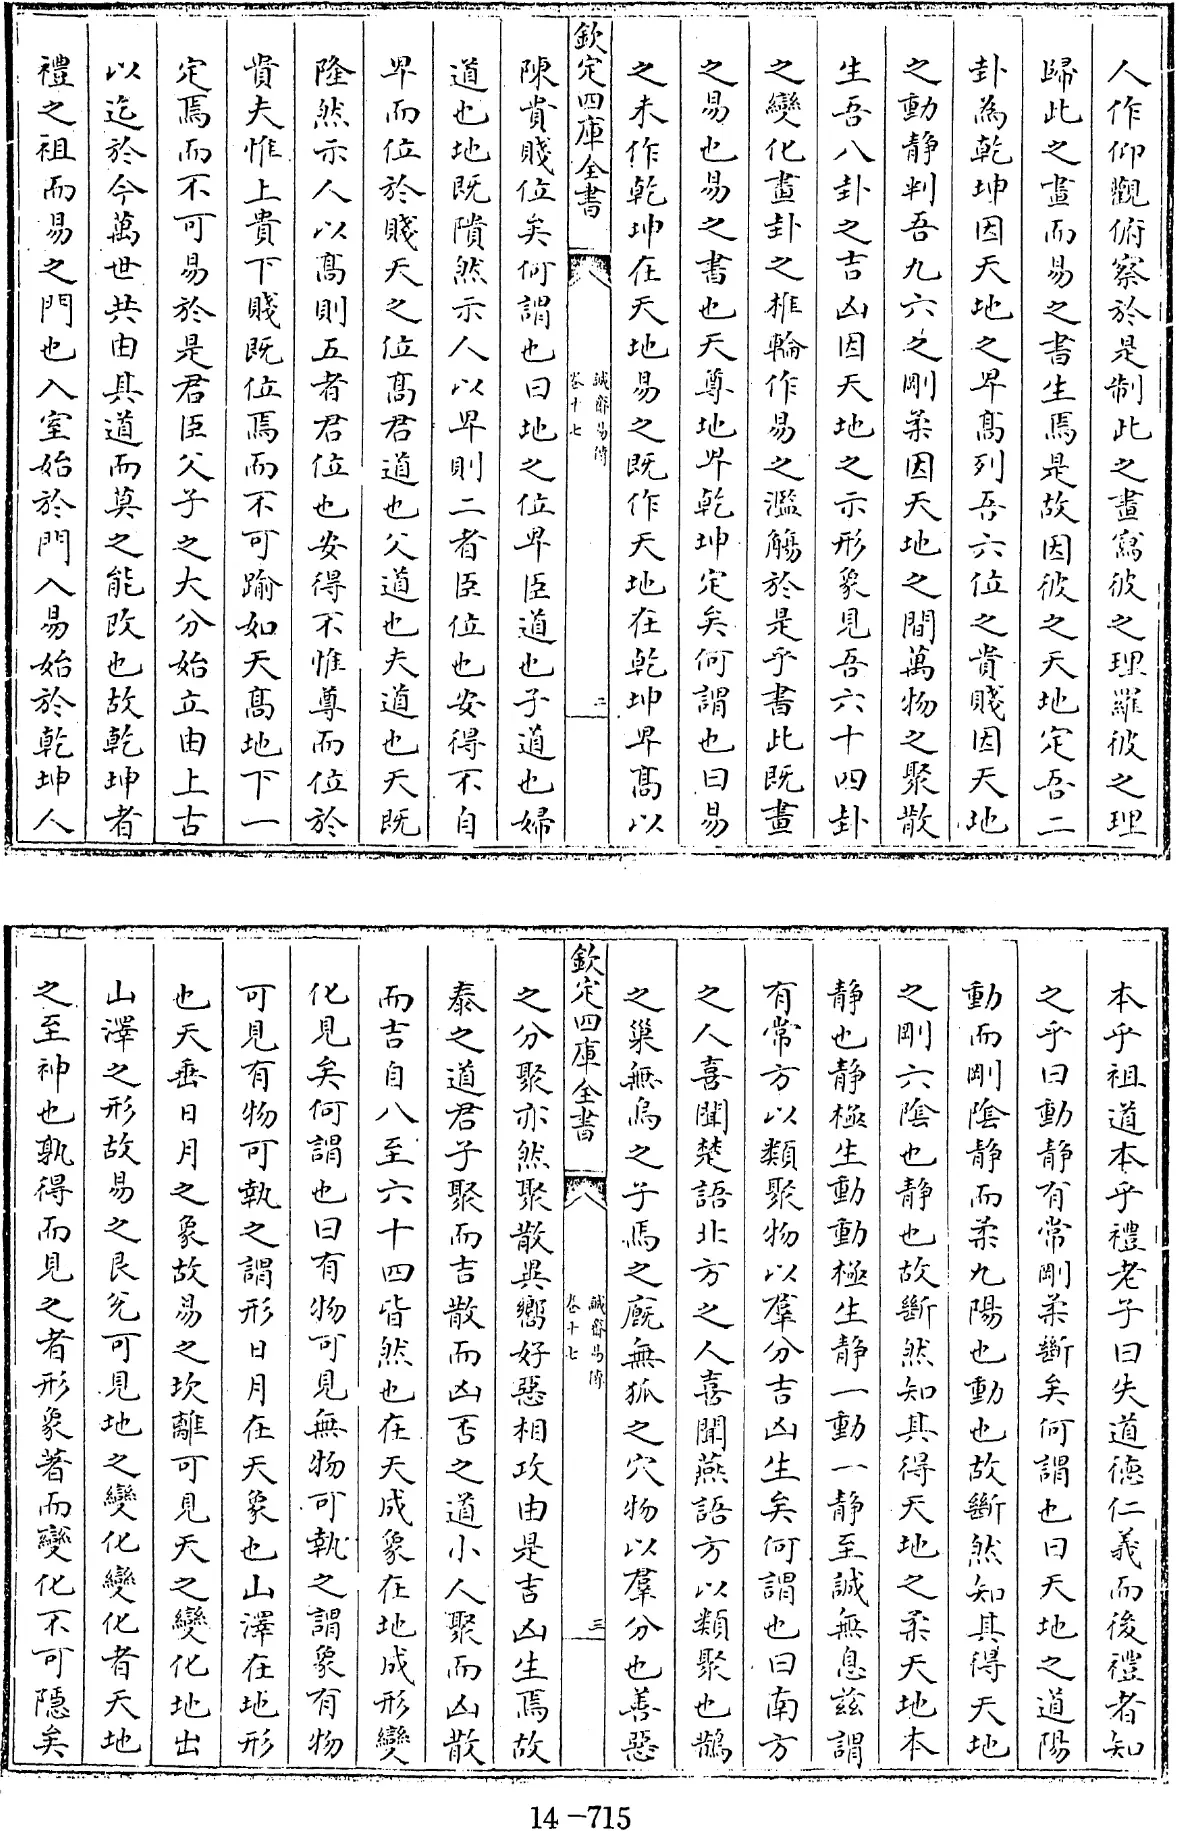 人作仰觀俯察於是制此之畫寫彼之理羅彼之理
歸此之畫而易之書生焉是故因彼之天地定吾二
卦為乾坤因天地之卑髙列吾六位之貴賤因天地
之動静判吾九六之剛柔因天地之間萬物之聚散
生吾八卦之吉凶因天地之示形象見吾六十四卦
之變化畫卦之椎輪作易之濫觴於是乎書此既畫
之易也易之書也天尊地卑乾坤定矣何謂也曰易
之未作乾坤在天地易之既作天地在乾坤卑髙以
欽定四庫全書
誠齋易傳
卷十七
二
陳貴賤位矣何謂也曰地之位卑臣道也子道也婦
道也地既隤然示人以卑則二者臣位也安得不自
卑而位於賤天之位髙君道也父道也夫道也天既
隆然示人以髙則五者君位也安得不惟尊而位於
貴夫惟上貴下賤既位焉而不可踰如天髙地下一
定焉而不可易於是君臣父子之大分始立由上古
以迄於今萬世共由其道而莫之能改也故乾坤者
禮之祖而易之門也入室始於門入易始於乾坤人
本乎祖道本乎禮老子曰失道徳仁義而後禮者知
之乎曰動静有常剛柔斷矣何謂也曰天地之道陽
動而剛陰静而柔九陽也動也故斷然知其得天地
之剛六陰也静也故斷然知其得天地之柔天地本
静也静極生動動極生静一動一静至誠無息兹謂
有常方以類聚物以羣分吉凶生矣何謂也曰南方
之人喜聞楚語北方之人喜聞燕語方以類聚也鵲
之巢無烏之子馬之廐無狐之穴物以羣分也善惡
欽定四庫全書
誠齋易傳
卷十七
三
之分聚亦然聚散異嚮好惡相攻由是吉凶生焉故
泰之道君子聚而吉散而凶否之道小人聚而凶散
而吉自八至六十四皆然也在天成象在地成形變
化見矣何謂也曰有物可見無物可執之謂象有物
可見有物可執之謂形日月在天象也山澤在地形
也天垂日月之象故易之坎離可見天之變化地出
山澤之形故易之艮兊可見地之變化變化者天地
之至神也孰得而見之者形象著而變化不可隱矣
14-715